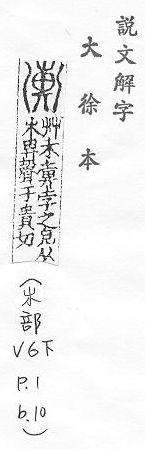 説文解字
大徐本
艸木孛之皃从
𣎵畀聲于貴切
（𣎵部
V6下
P.1
b.10）